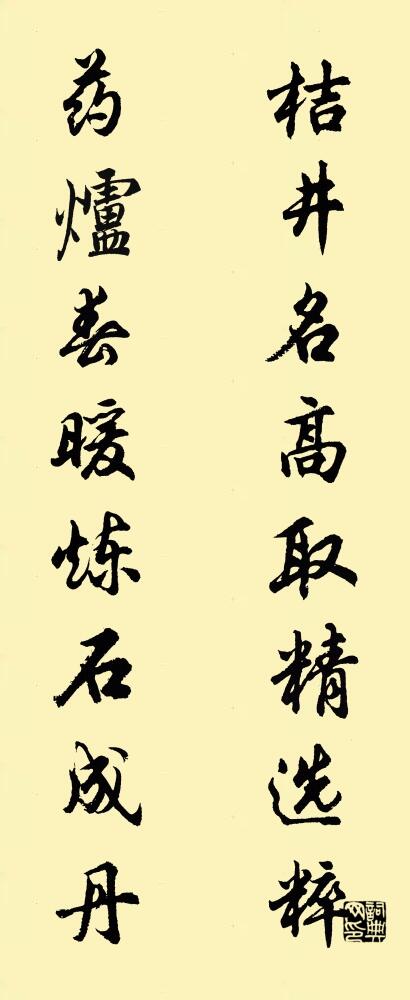 桔井名高取精选粹
药爐春暖炼石成丹
詞典网印